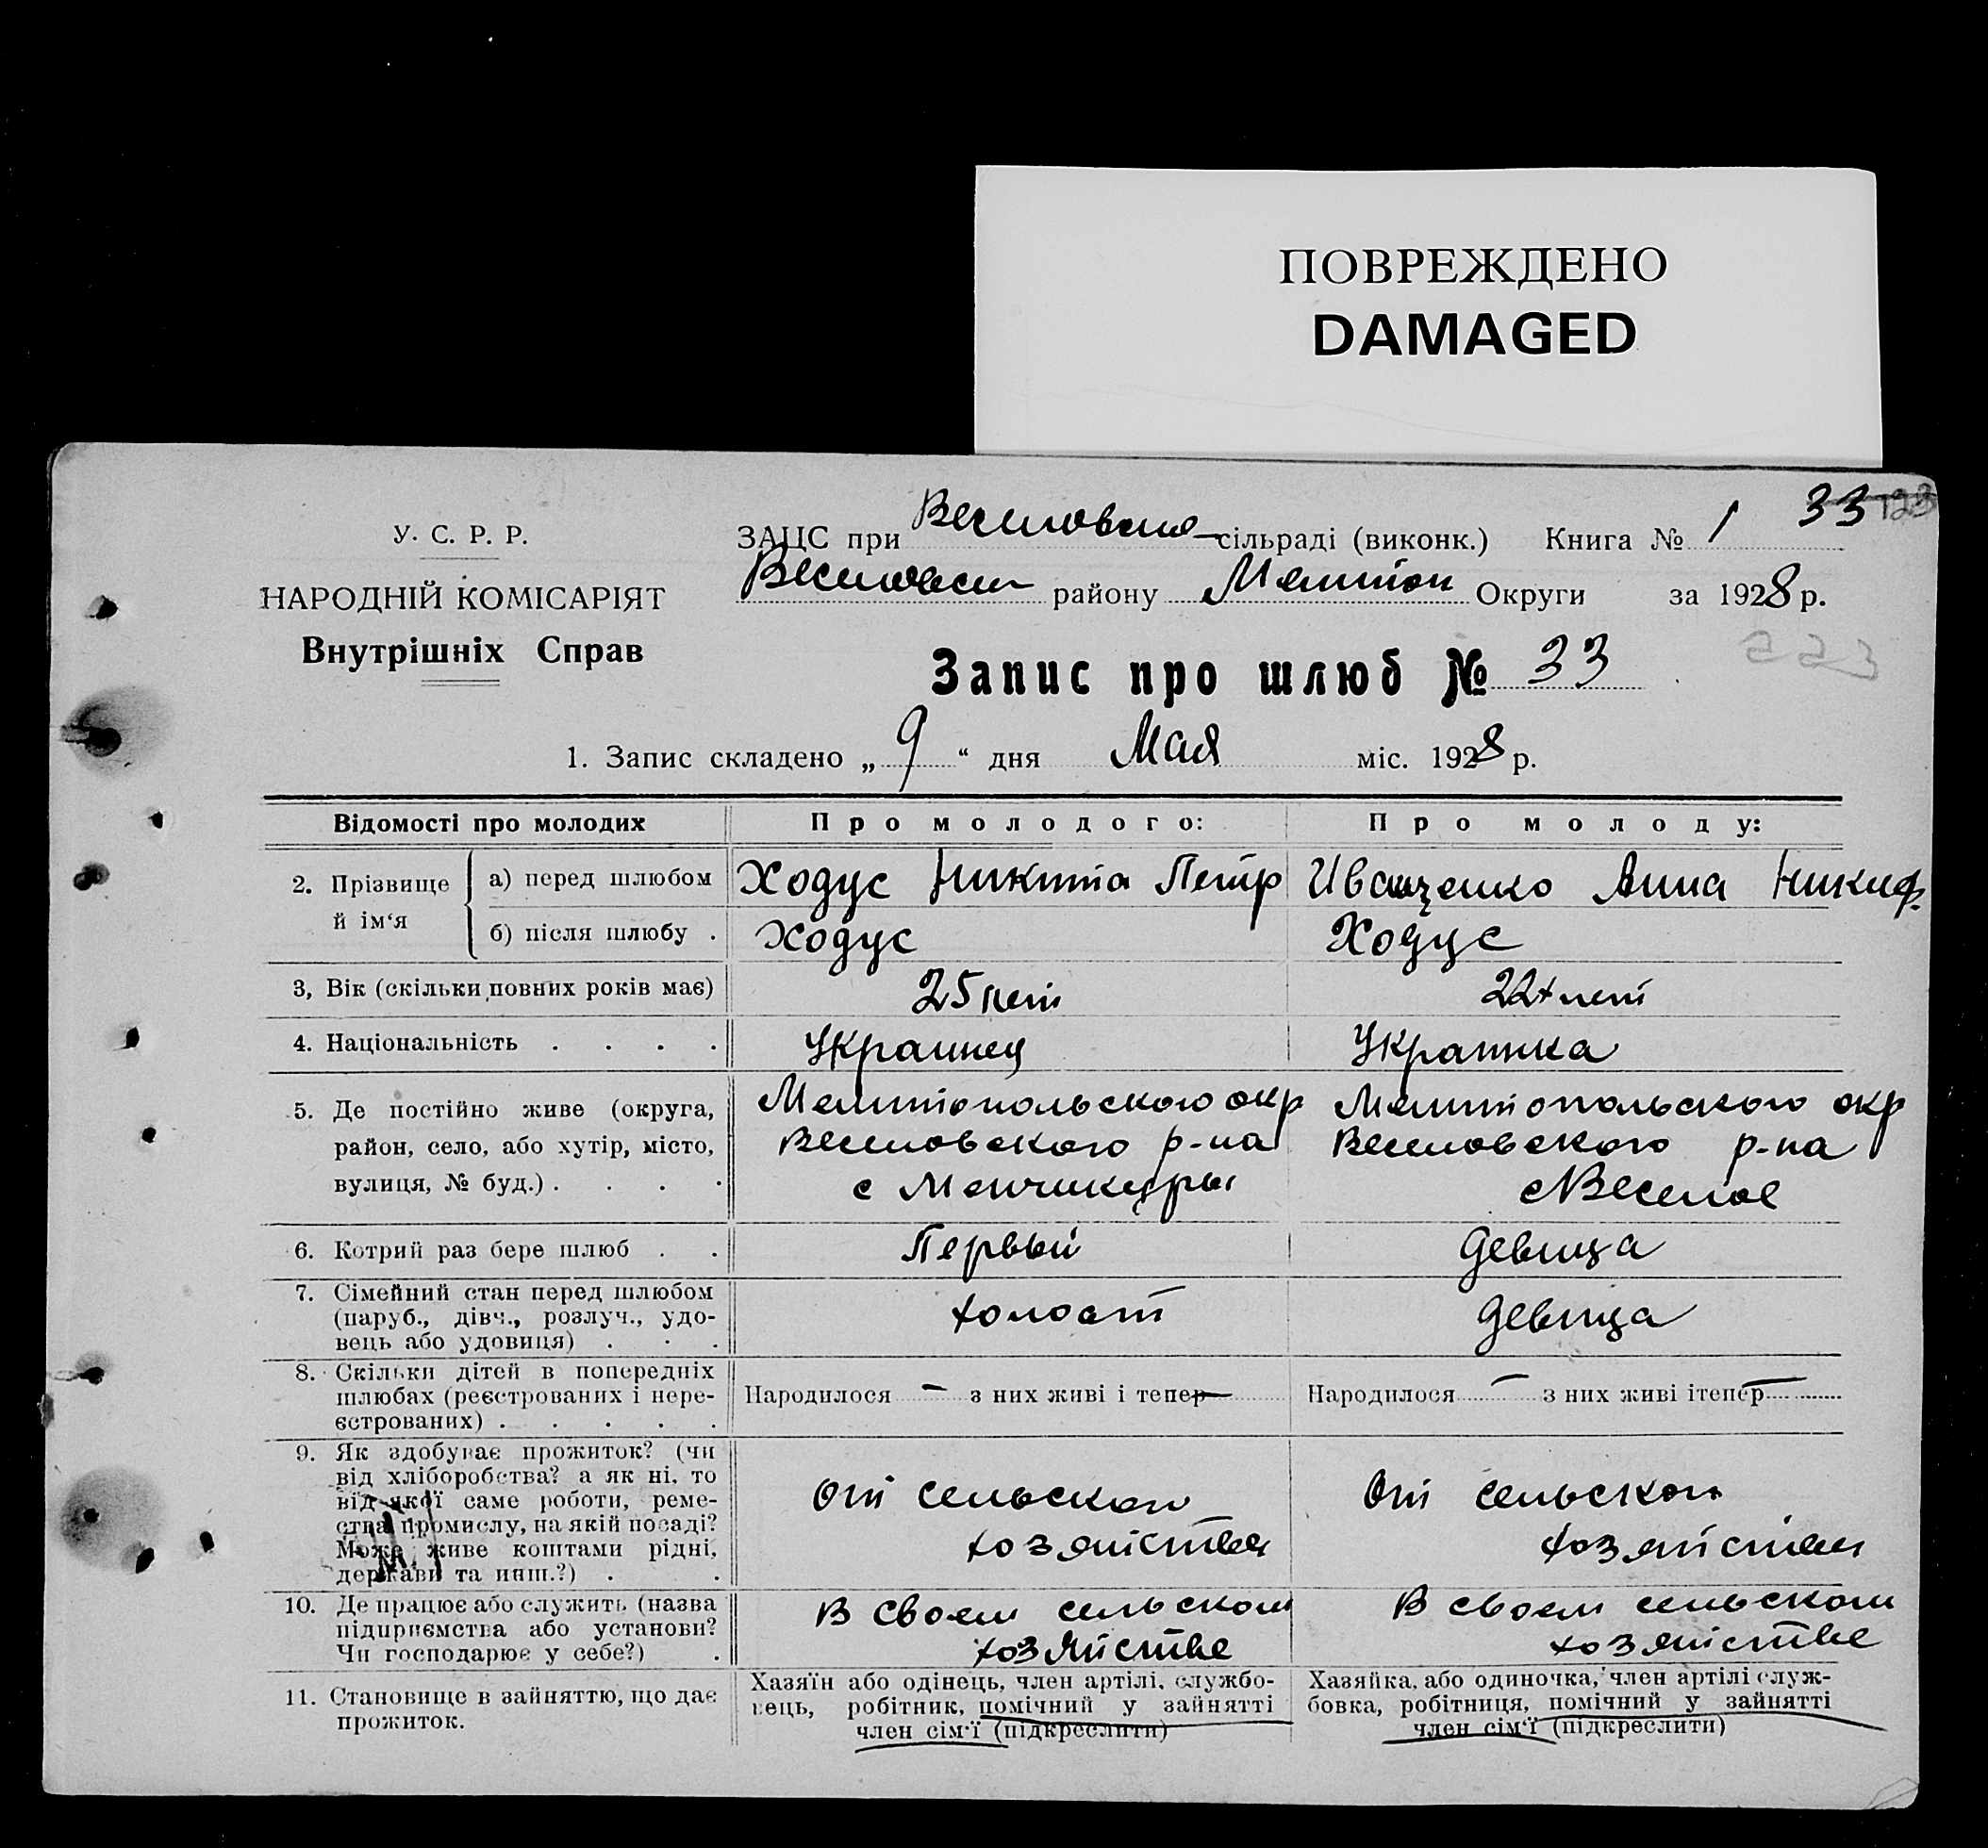 ПОВРЕЖДЕНО
DAMAGED
33
У. С. Р. Р.
ЗАЦС при Веселовско сільраді (виконк.) Книга № 1
НАРОДНІЙ КОМІСАРІЯТ
Веселовск району Мелитоп Округи за 1928 р.
Внутрішніх Справ
223
Запис про шлюб № 33
1. Запис складено „ 9 “ дня Мая міс. 1928 р.
Відомості про молодих Про молодого: Про молоду:
2. Прізвище й ім‘я
а) перед шлюбом Ходус Никита Петр Иващенко Анна Никиф.
б) після шлюбу . Ходус Ходус
3, Вік (скільки повних років має) 25 лет 22 лет
4. Національність . . . . Украинец Украинка
5. Де постійно живе (округа, Мелитопольского окр Мелитопольского окр
район, село, або хутір, місто, Веселовского р-на Веселовского р-на
вулиця, № буд.) . . . . с Менчикуры с Веселое
6. Котрий раз бере шлюб . . Первый девица
7. Сімейний стан перед шлюбом
(паруб., дівч., розлуч., удо- холост девица
вець або удовиця) . . .
8. Скільки дітей в попередніх
шлюбах (реєстрованих і нере- Народилося — з них живі і тепер — Народилося — з них живі ітепер —
єстрованих) . . . . .
9. Як здобуває прожиток? (чи
від хліборобства? а як ні, то
від якої саме роботи, реме- От сельского От сельского
ства промислу, на якій посаді?
Може живе коштами рідні, хозяйства хозяйства
держави та инш.?) . .
10. Де працює або служить (назва В своем сельском В своем сельском
підприємства або установи?
Чи господарює у себе?) . хозяйстве хозяйстве
11. Становище в зайняттю, що дає
прожиток.
Хазяїн або одінець, член артілі, службо-
вець, робітник, помічний у зайнятті
член сім‘ї (підкреслити)
Хазяйка, або одиночка, член артілі служ-
бовка, робітниця, помічний у зайнятті
член сім‘ї (підкреслити)